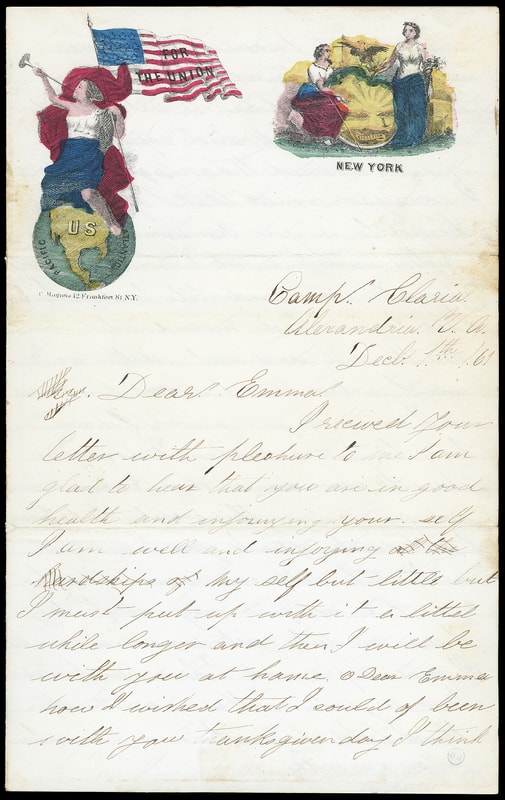 FOR
THE UNION
US
PACIFIC
ATLANTIC
NEW YORK
C. Magnus 12 Frankfort St. N.Y.
Camp. Claria
Alexandria V. A.
Decb. 1th /61
Dear Emma
I recived your
letter with pleshure to me I am
glad to hear that you are in good
health and injoruing your self
I am well and injoying
hardships of my self but little but
I must put up with it a littel
while longer and then I will be
with you at home. O Dear Emma
how I wished that I could of been
with you thanksgivenday I think